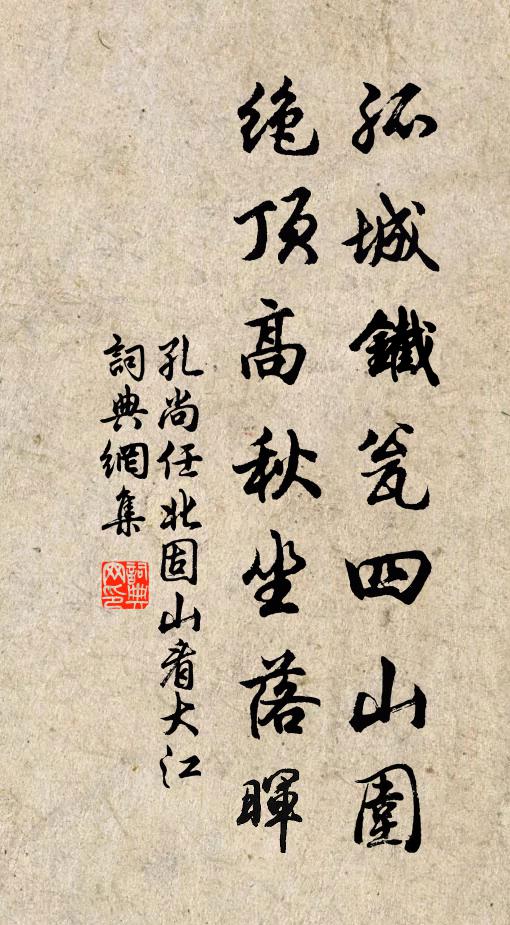 孤城鐵瓮四山圍
绝頂高秋坐落暉
孔尚任北固山看大江
詞典網集
詞典
网印